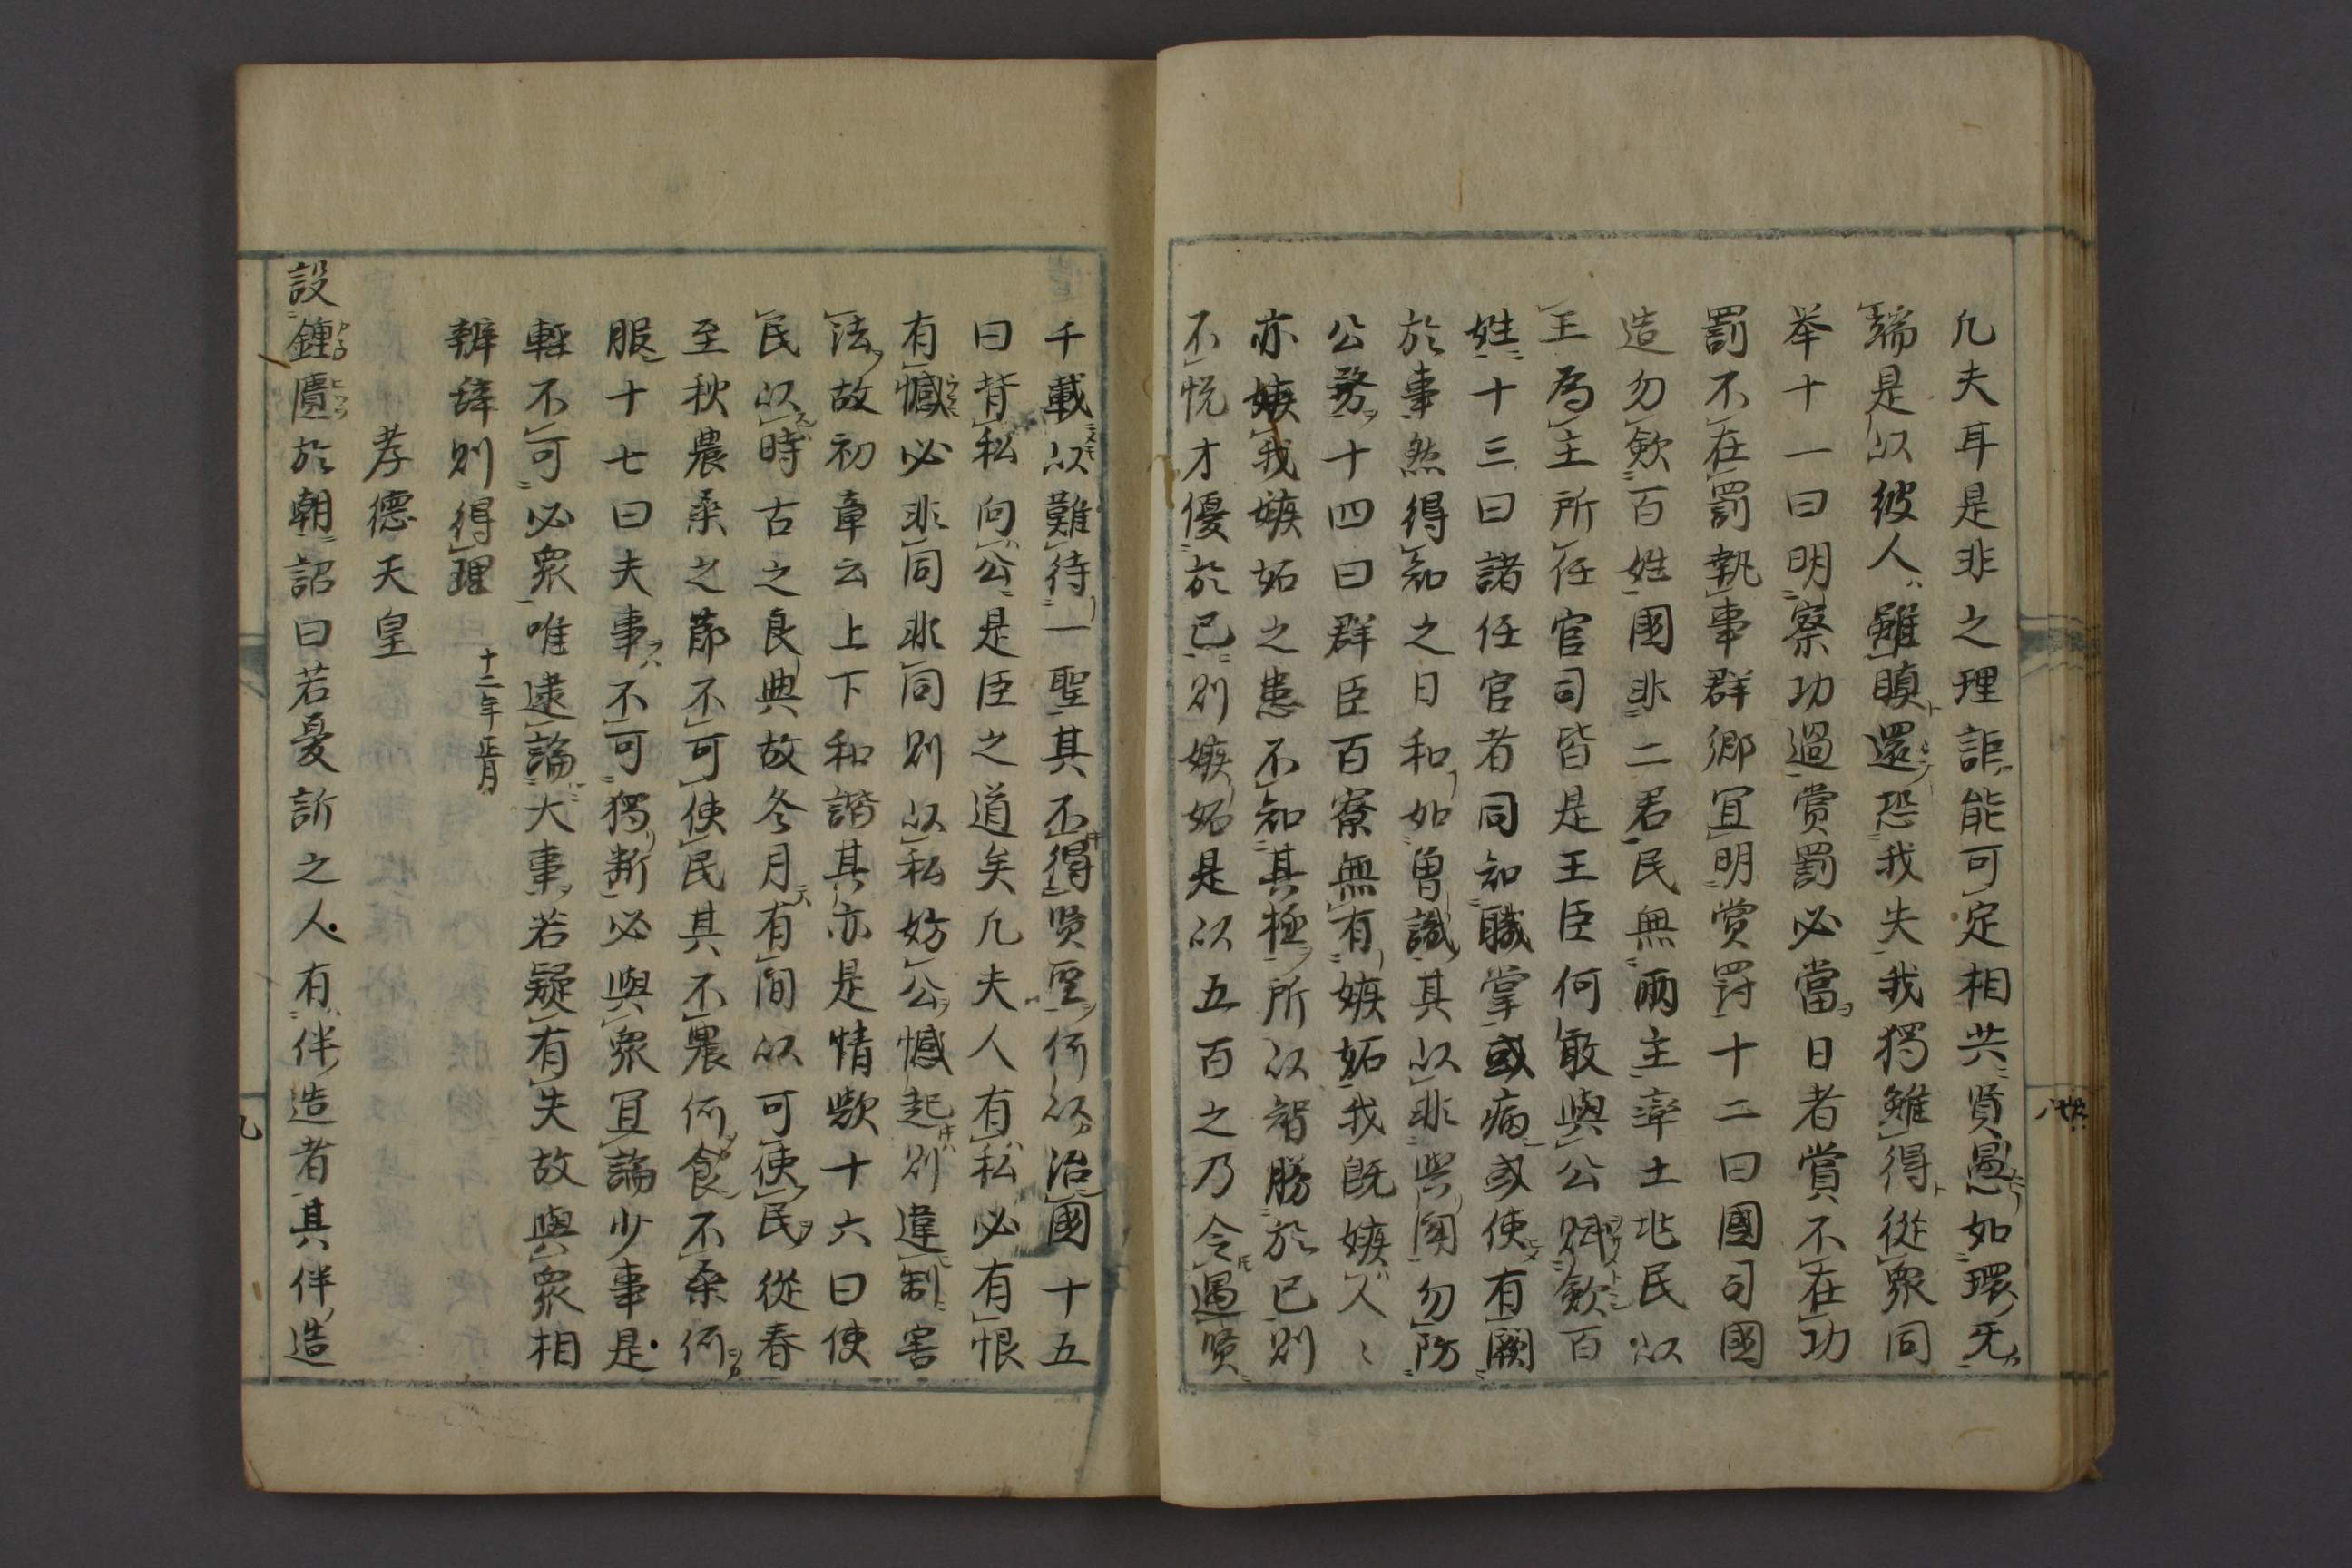 凡夫耳是非之理詎能可定相共賢愚如環无
端是以彼人雖瞋還恐我失我獨雖得從衆同
举十一曰明察功過賞罰必當日者賞不在功
罰不在罰執事群卿宜明賞罸十二曰國司國
造勿歛百姓國非二君民無兩主率土兆民以
王為主所任官司皆是王臣何敢與公賦歛百
姓十三曰諸任官者同知職掌或病或使有闕
於事然得知之日和如曽識其以非與聞勿防
公務十四曰群臣百寮無有嫉妬我既嫉人〻
亦嫉我嫉妬之患不知其極所以智勝於已則
不悦才優於已則嫉妬是以五百之乃令遇賢
千載以難待一聖其不得賢聖何以治國十五
曰背私向公是臣之道矣凡夫人有私必有恨
有憾必非同非同則以私妨公憾起則違制害
法故初章云上下和諧其亦是情歟十六曰使
民以時古之良典故冬月有間以可使民從春
至秋農桑之節不可使民其不農何食不桑何
服十七曰夫事不可獨断必與衆宜論少事是
輕不可必衆唯逮論大事若疑有失故與衆相
辨辞則得理 十二年正月
孝德天皇
設鍾匱於朝詔曰若憂訴之人有伴造者其伴造
九